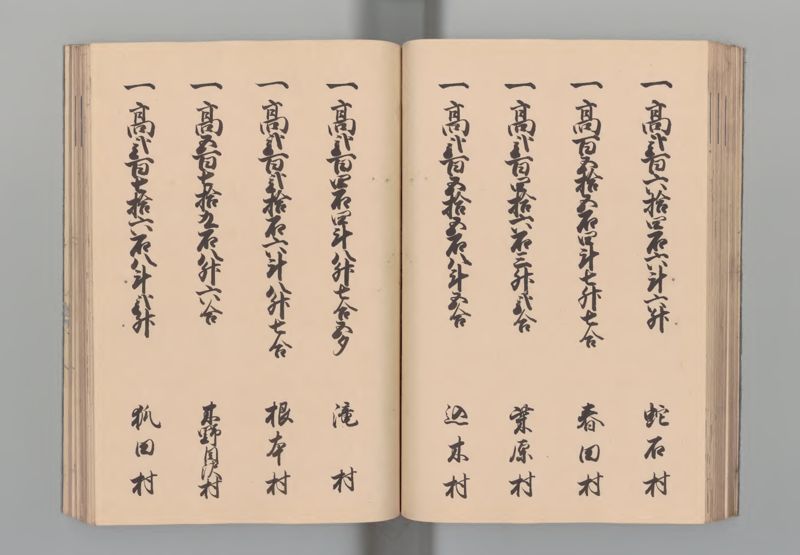 一高弐百六拾四石六斗六升 蛇石村
一高百五拾五石四斗七升七合 春田村
一高弐百四拾六石三升弐合 葉原村
一高弐百五拾五石八斗五合 込木村
一高弐百四石四斗八升七合五夕 滝村
一高弐百弐拾石六斗八升七合 根本村
一高五百七拾九石八升六合 木野目沢村
一高弐百七拾六石八斗弐升 狐田村